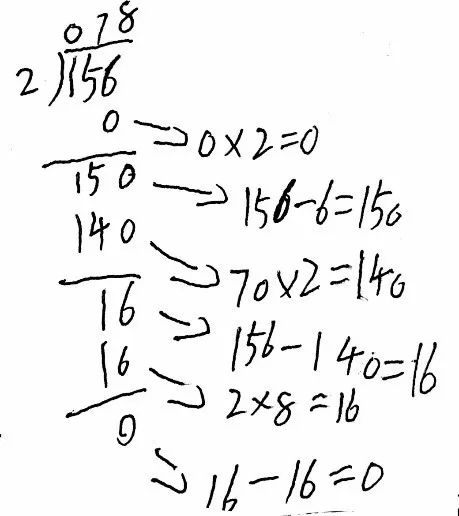 078
2)156
0 → 0×2=0
150 → 156-6=150
140 → 70×2=140
16 → 156-140=16
16 → 2×8=16
0 → 16-16=0